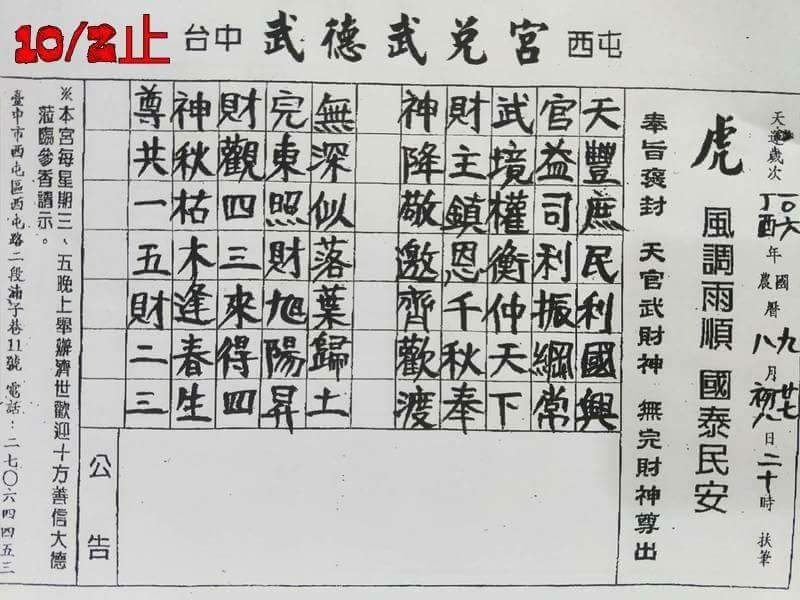 10/2止 台中 武德武兌宮 西屯
天運歲次丁酉一〇六年國農曆九八月廿七初八日二十時 扶筆
虎 風調雨順 國泰民安
奉旨褒封 天官武財神 無完財神尊出
天豐庶民利國興
官益司利振綱常
武境權衡仲天下
財主鎮恩千秋奉
神降敬邀齊歡渡
無深似落葉歸土
完東照財旭陽昇
財觀四三來得四
神秋枯木逢春生
尊共一五財二三
公告
※本宮每星期三、五晚上舉辦濟世歡迎十方善信大德
蒞臨參香請示。
臺中市西屯區西屯路二段湳子巷11號 電話:二七〇六四四五三